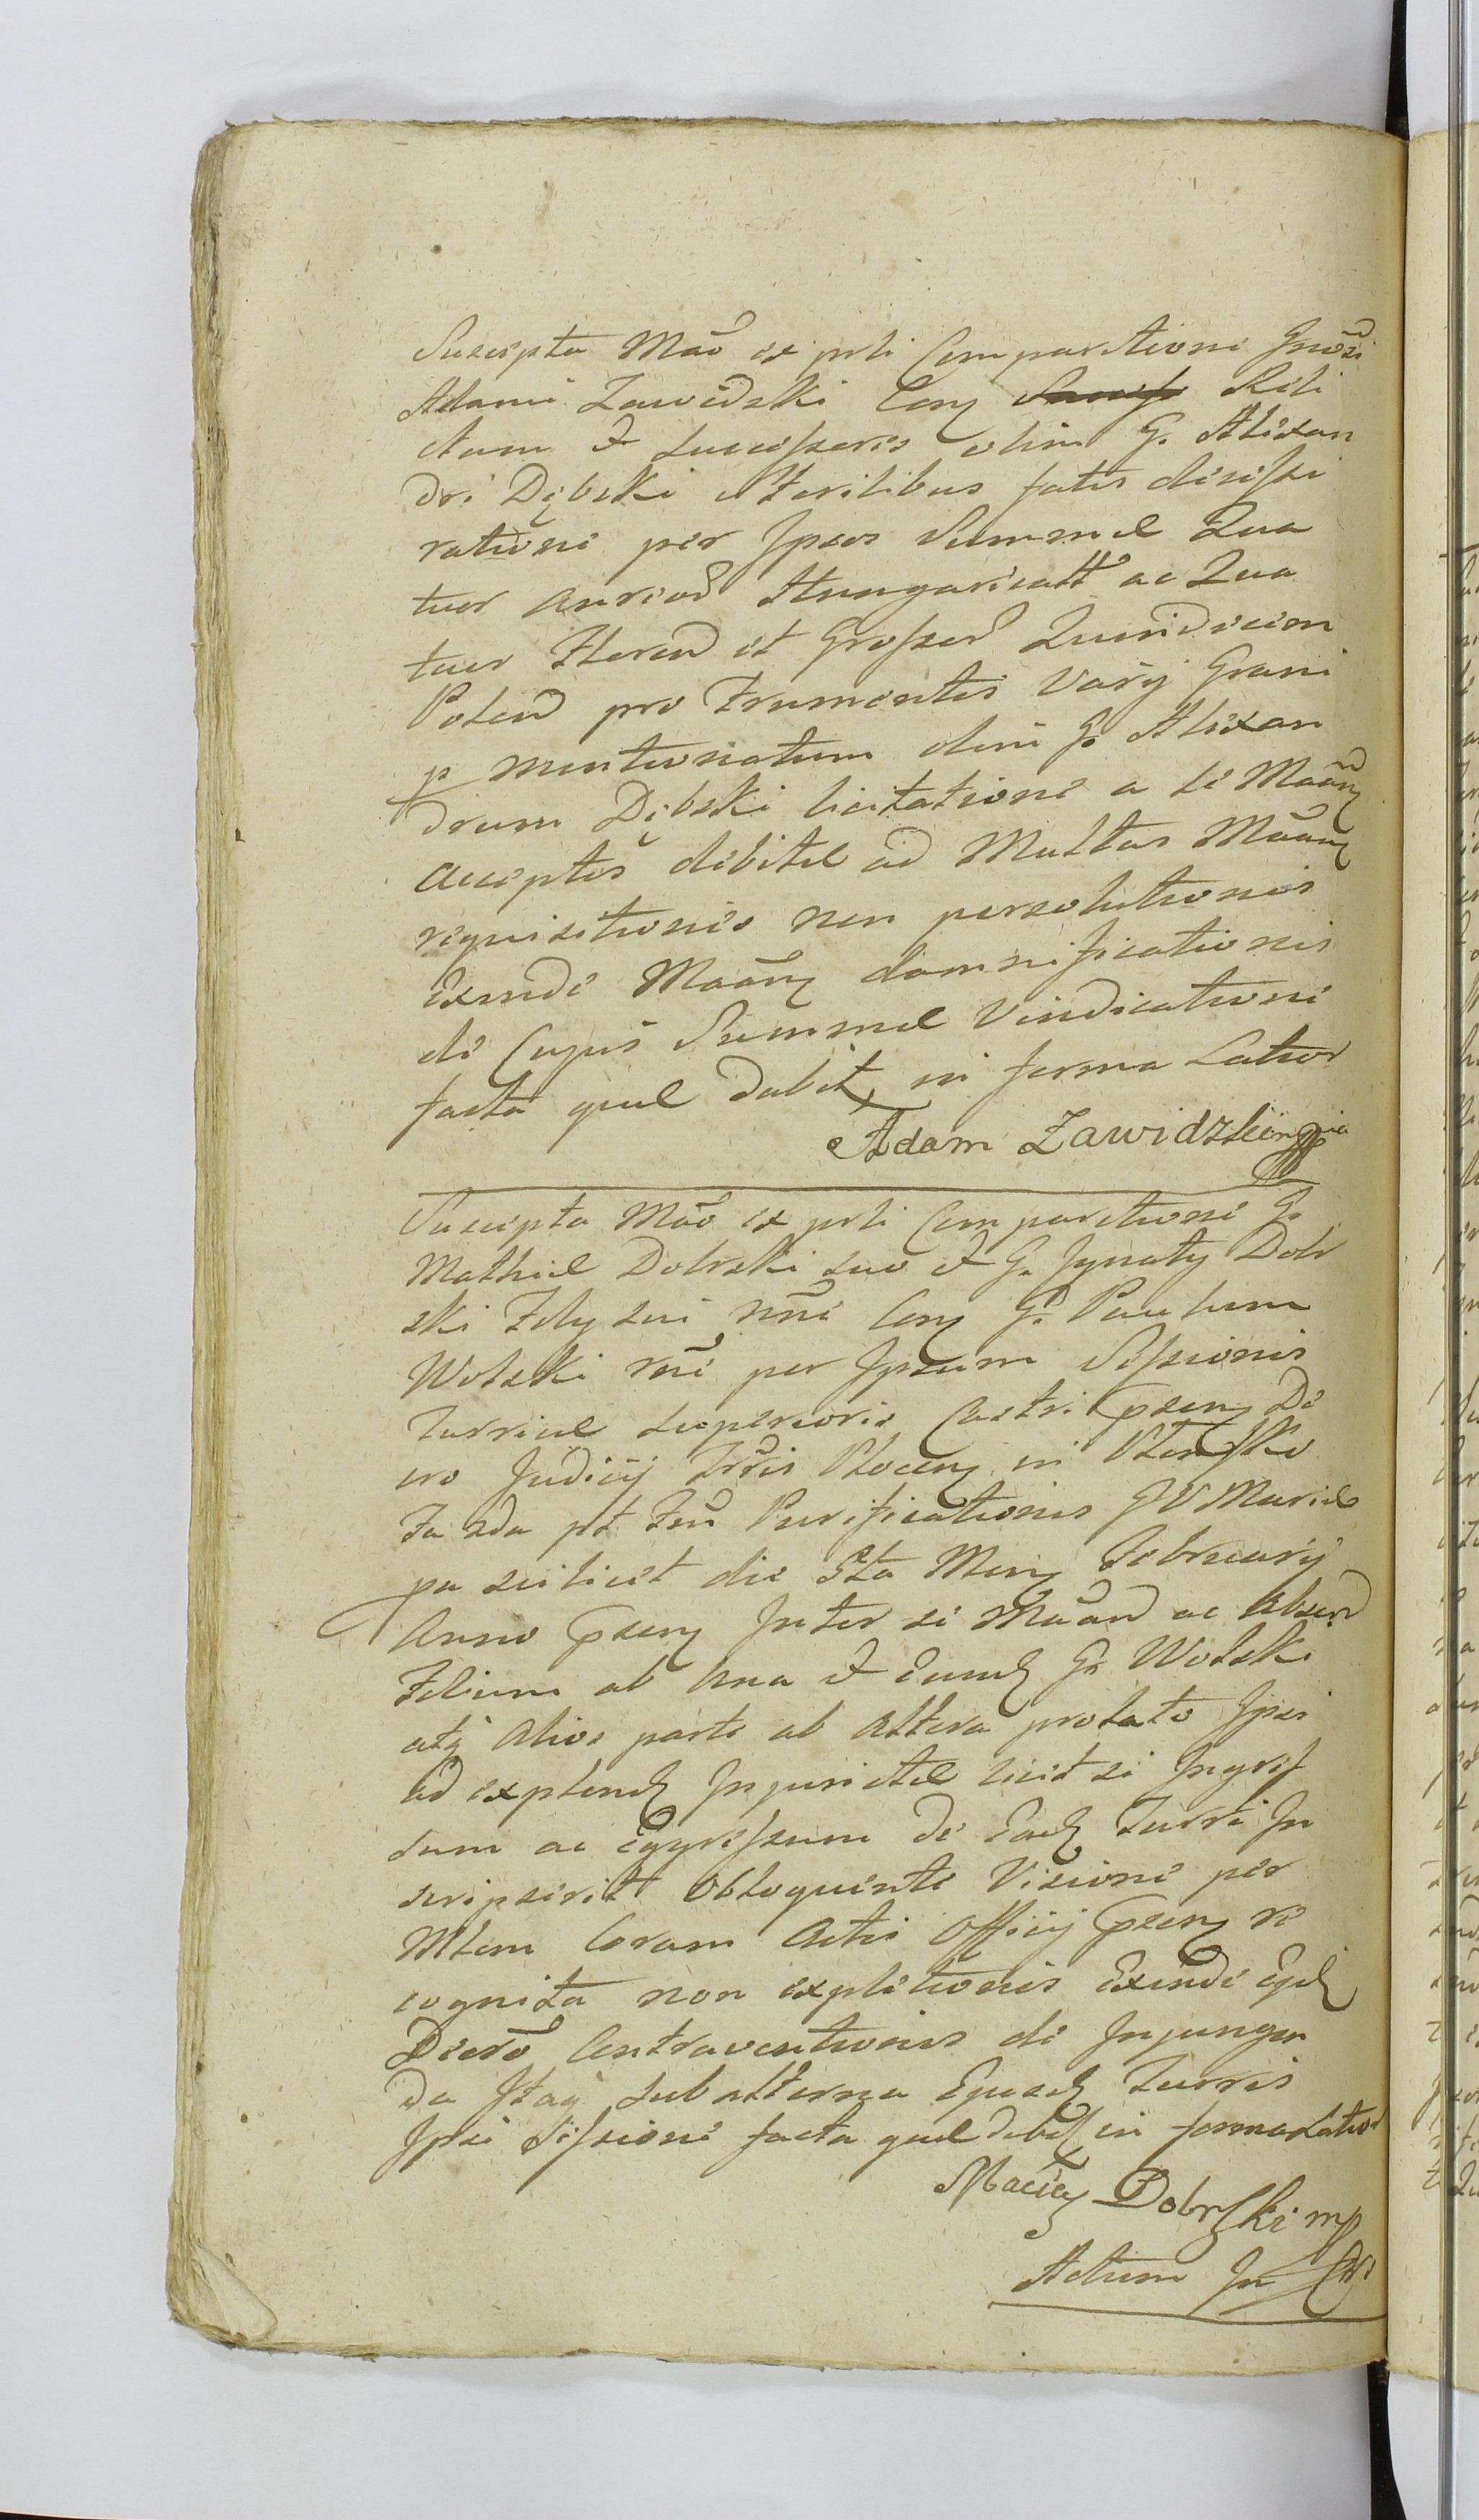 Suscepta Mão ex prli Comparitione Gnõsi
Adami Zawidzki Con Reli
ctam & Successores olim G. Alexan
dri Dębski Sterilibus fatis decessi
ratione per Ipsos Summæ Qua
tuor Aureoř Hungaricall ac Qua
tuor Floren et Grossor Quindecem
Polon pro Frumentis Varÿ Grani
p mentionatum olim G. Alexan
drum Dębski licitatione a se Maãn
acceptis debitæ ad Multas Maãn
requisitiones non persolutionis
Exinde Maãn damnificationis
de Cujus Summæ Vindicatione
facta quæ dabit, in forma Latior
Adam Zawidzki mppia
Suscepta Mão ex prli Comparitione G.
Mathiæ Dobrski suo & G. Ignaty Dobr
ski Filij sui nñe Con G. Paulum
Wolski rñe per Ipsum Sessionis
Turriæ superioris Castri Psen De
cro Judicÿ Trris Plocen in Plonsko
Fa 2da pt Fest Purificationis B V Mariæ
pa scilicet die 5ta Men February
Anno Psen Inter se Maãn ac Absen
Filium ab Una & eund G. Wolski
atq Alios parte ab Altera prolato Ipsi
ad explend Injunctæ licet se Ingres
sum ac Egressum de Ead Turri In
scripserit Obloquente Visione per
Mlem Coram Actis Officÿ Psen re
cognita non expletionis Exinde Ejd
Decrõ Contraventionis de Injungen
da Itaq subalterna Ejusd Turris
Ipsi Sessione facta quæ dabit in forma Latior
Maciey Dobrski mp
Actum In